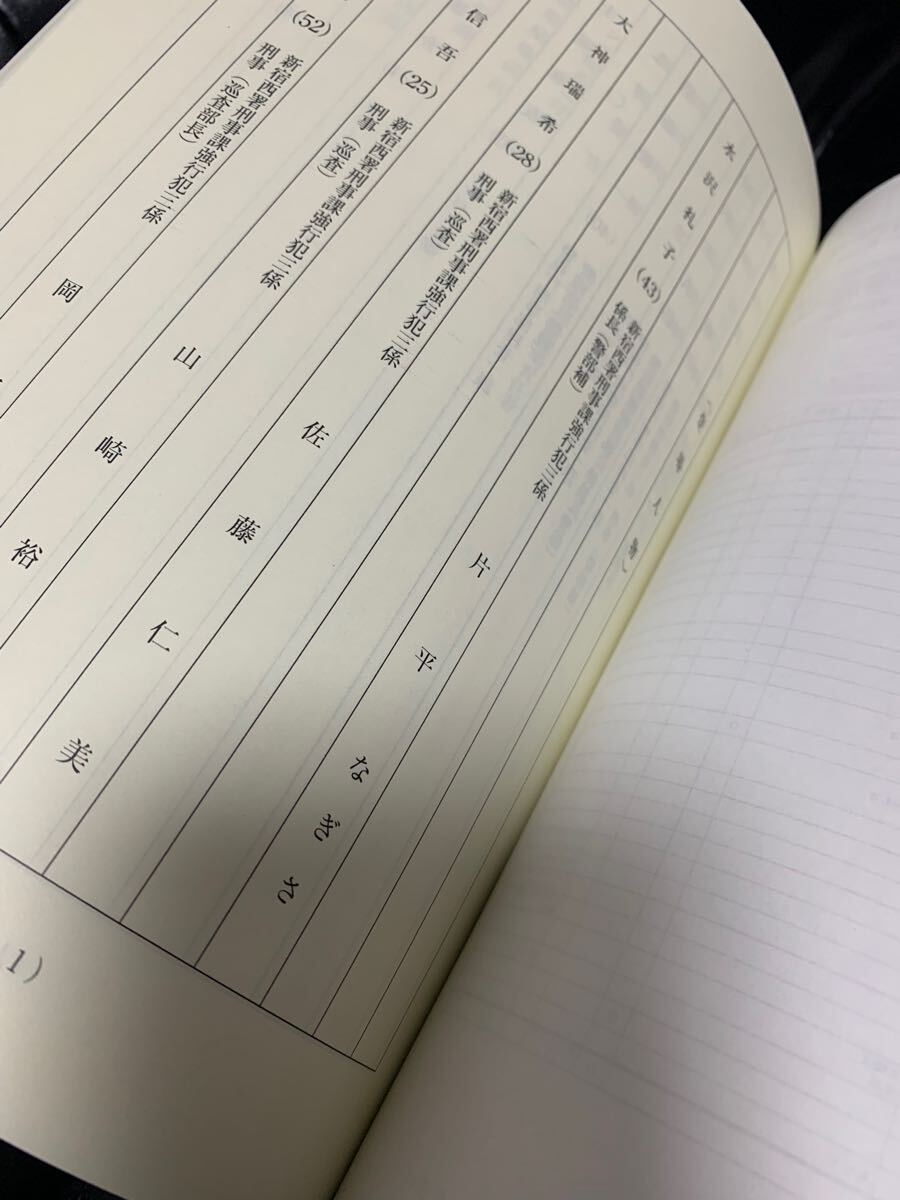 〈登場人物〉
水沢礼子(43)
新宿西署刑事課強行犯三係
係長(警部補)
片平なぎさ
大神瑞希(28)
新宿西署刑事課強行犯三係
刑事(巡査)
佐藤仁美
信吾(25)
新宿西署刑事課強行犯三係
刑事(巡査)
山崎裕
(52)
新宿西署刑事課強行犯三係
刑事(巡査部長)
岡
1)